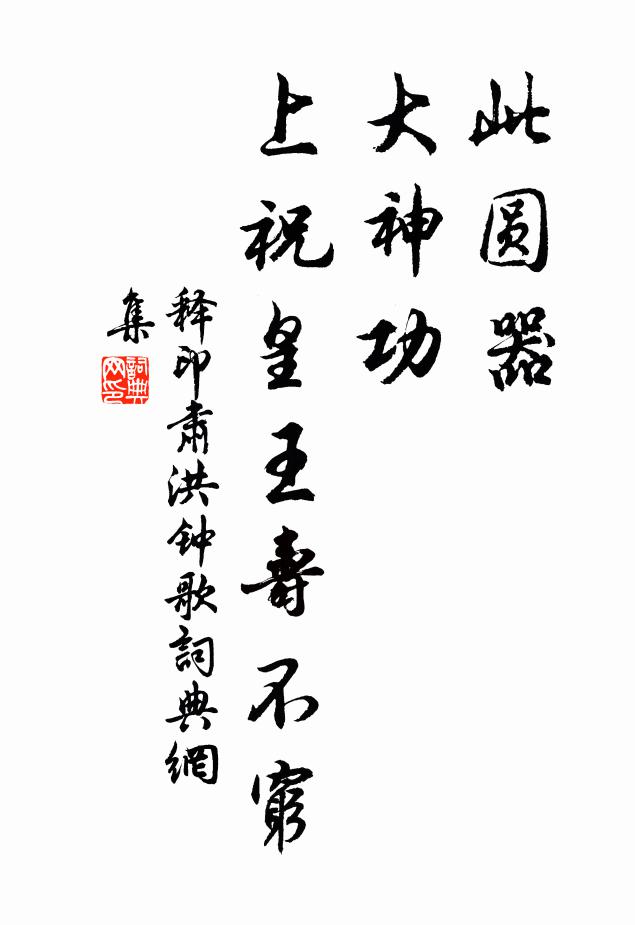 此圆器
大神功
上祝皇王壽不窮
释印肃洪钟歌詞典網
集
詞典网印